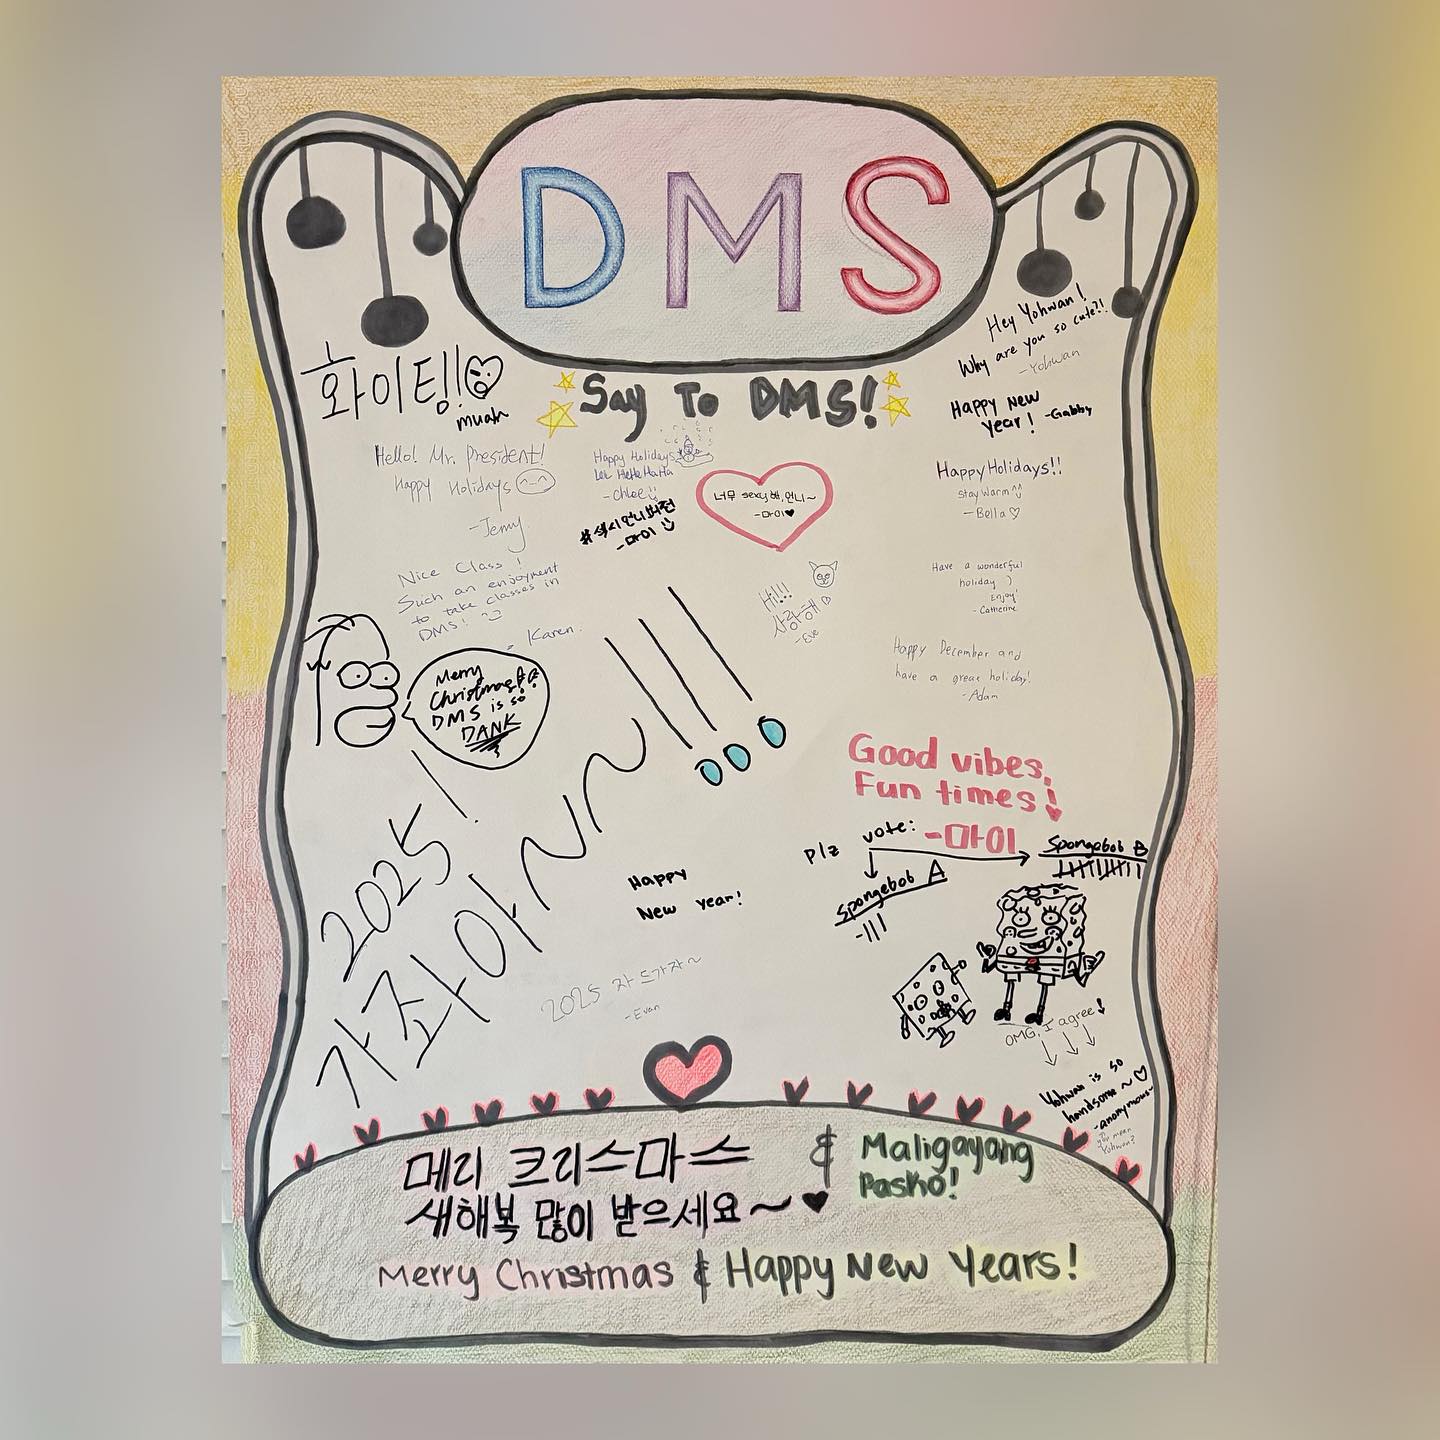 DMS
Say To DMS!
화이팅!!
muah
Hello! Mr. President!
Happy Holidays
-Jenny
Happy Holidays
-Chloe
#섹시언니버전
-마이
너무 sexy해, 언니~
-마이♥
Hey Yohwan!
Why are you so cute?!
-Yohwan
Happy New
Year! -Gabby
Happy Holidays!!
Stay Warm ^^
-Bella♡
Nice Class!
Such an enjoyment
to take classes in
DMS!
- Karen.
Hi!!!
사랑해
-Eve
Have a wonderful
holiday :)
Enjoy!
-Catherine
Happy December and
have a great holiday!
-Adam
Merry
Christmas!
DMS is so
DANK
Good vibes,
Fun times!
-마이
plz vote:
Spongebob A
Spongebob B
2025!
가좌아~~~!!!
Happy
New Year!
2025 자 드가자~
-Evan
OMG, I agree!
Yohwan is so
handsome~♡
-anonymous-
you mean
Yohwan?
메리 크리스마스 & Maligayang
Pasko!
새해복 많이 받으세요~♥
Merry Christmas & Happy New Years!